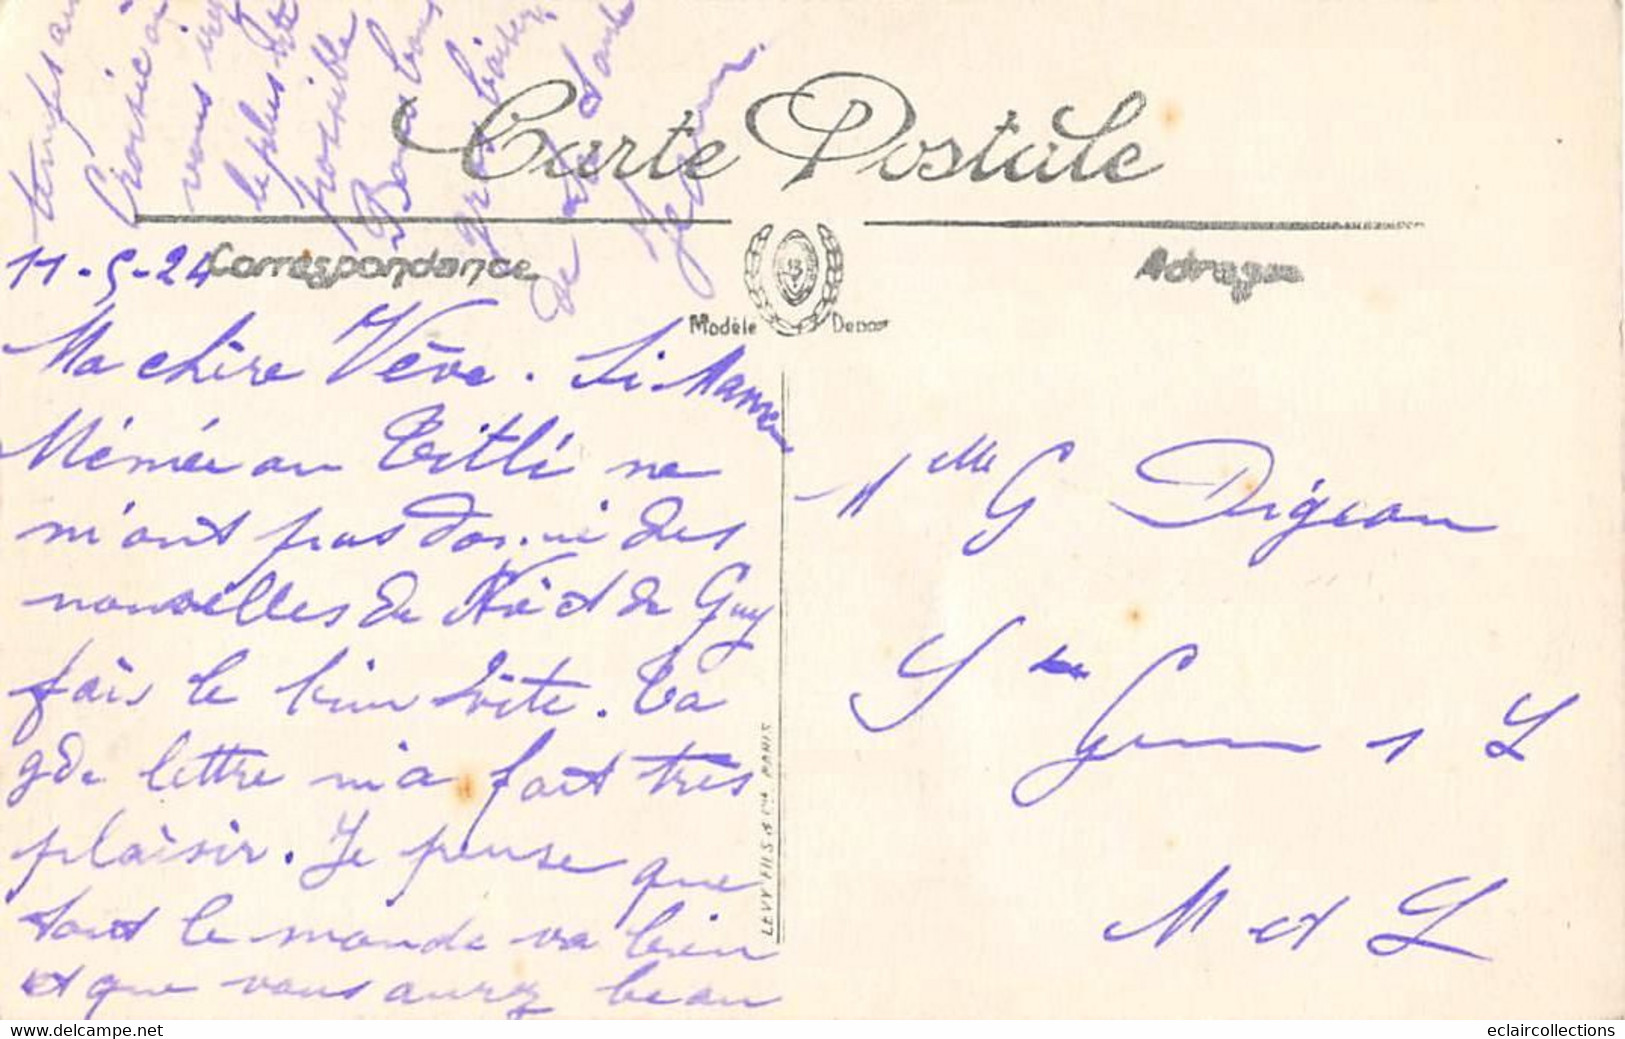 Carte Postale
Correspondance
Adresse
Modèle Déposé
LEVY FILS & Cie PARIS
11-5-24
Ma chère Vève. Si Maman
Mémée ou Titli ne
m'ont pas donné des
nouvelles de et de Guy
fais le bien vite. Ta
gde lettre m'a fait très
plaisir. Je pense que
tout le monde va bien
et que vous aurez beau
temps au
Croisic où
vous irez
le plus tôt
possible
Bons bons
gros baisers
de ta tante
Jeanne
Mlle G Digeon
St Gemmes s L
M et L
eclaircollections
www.delcampe.net